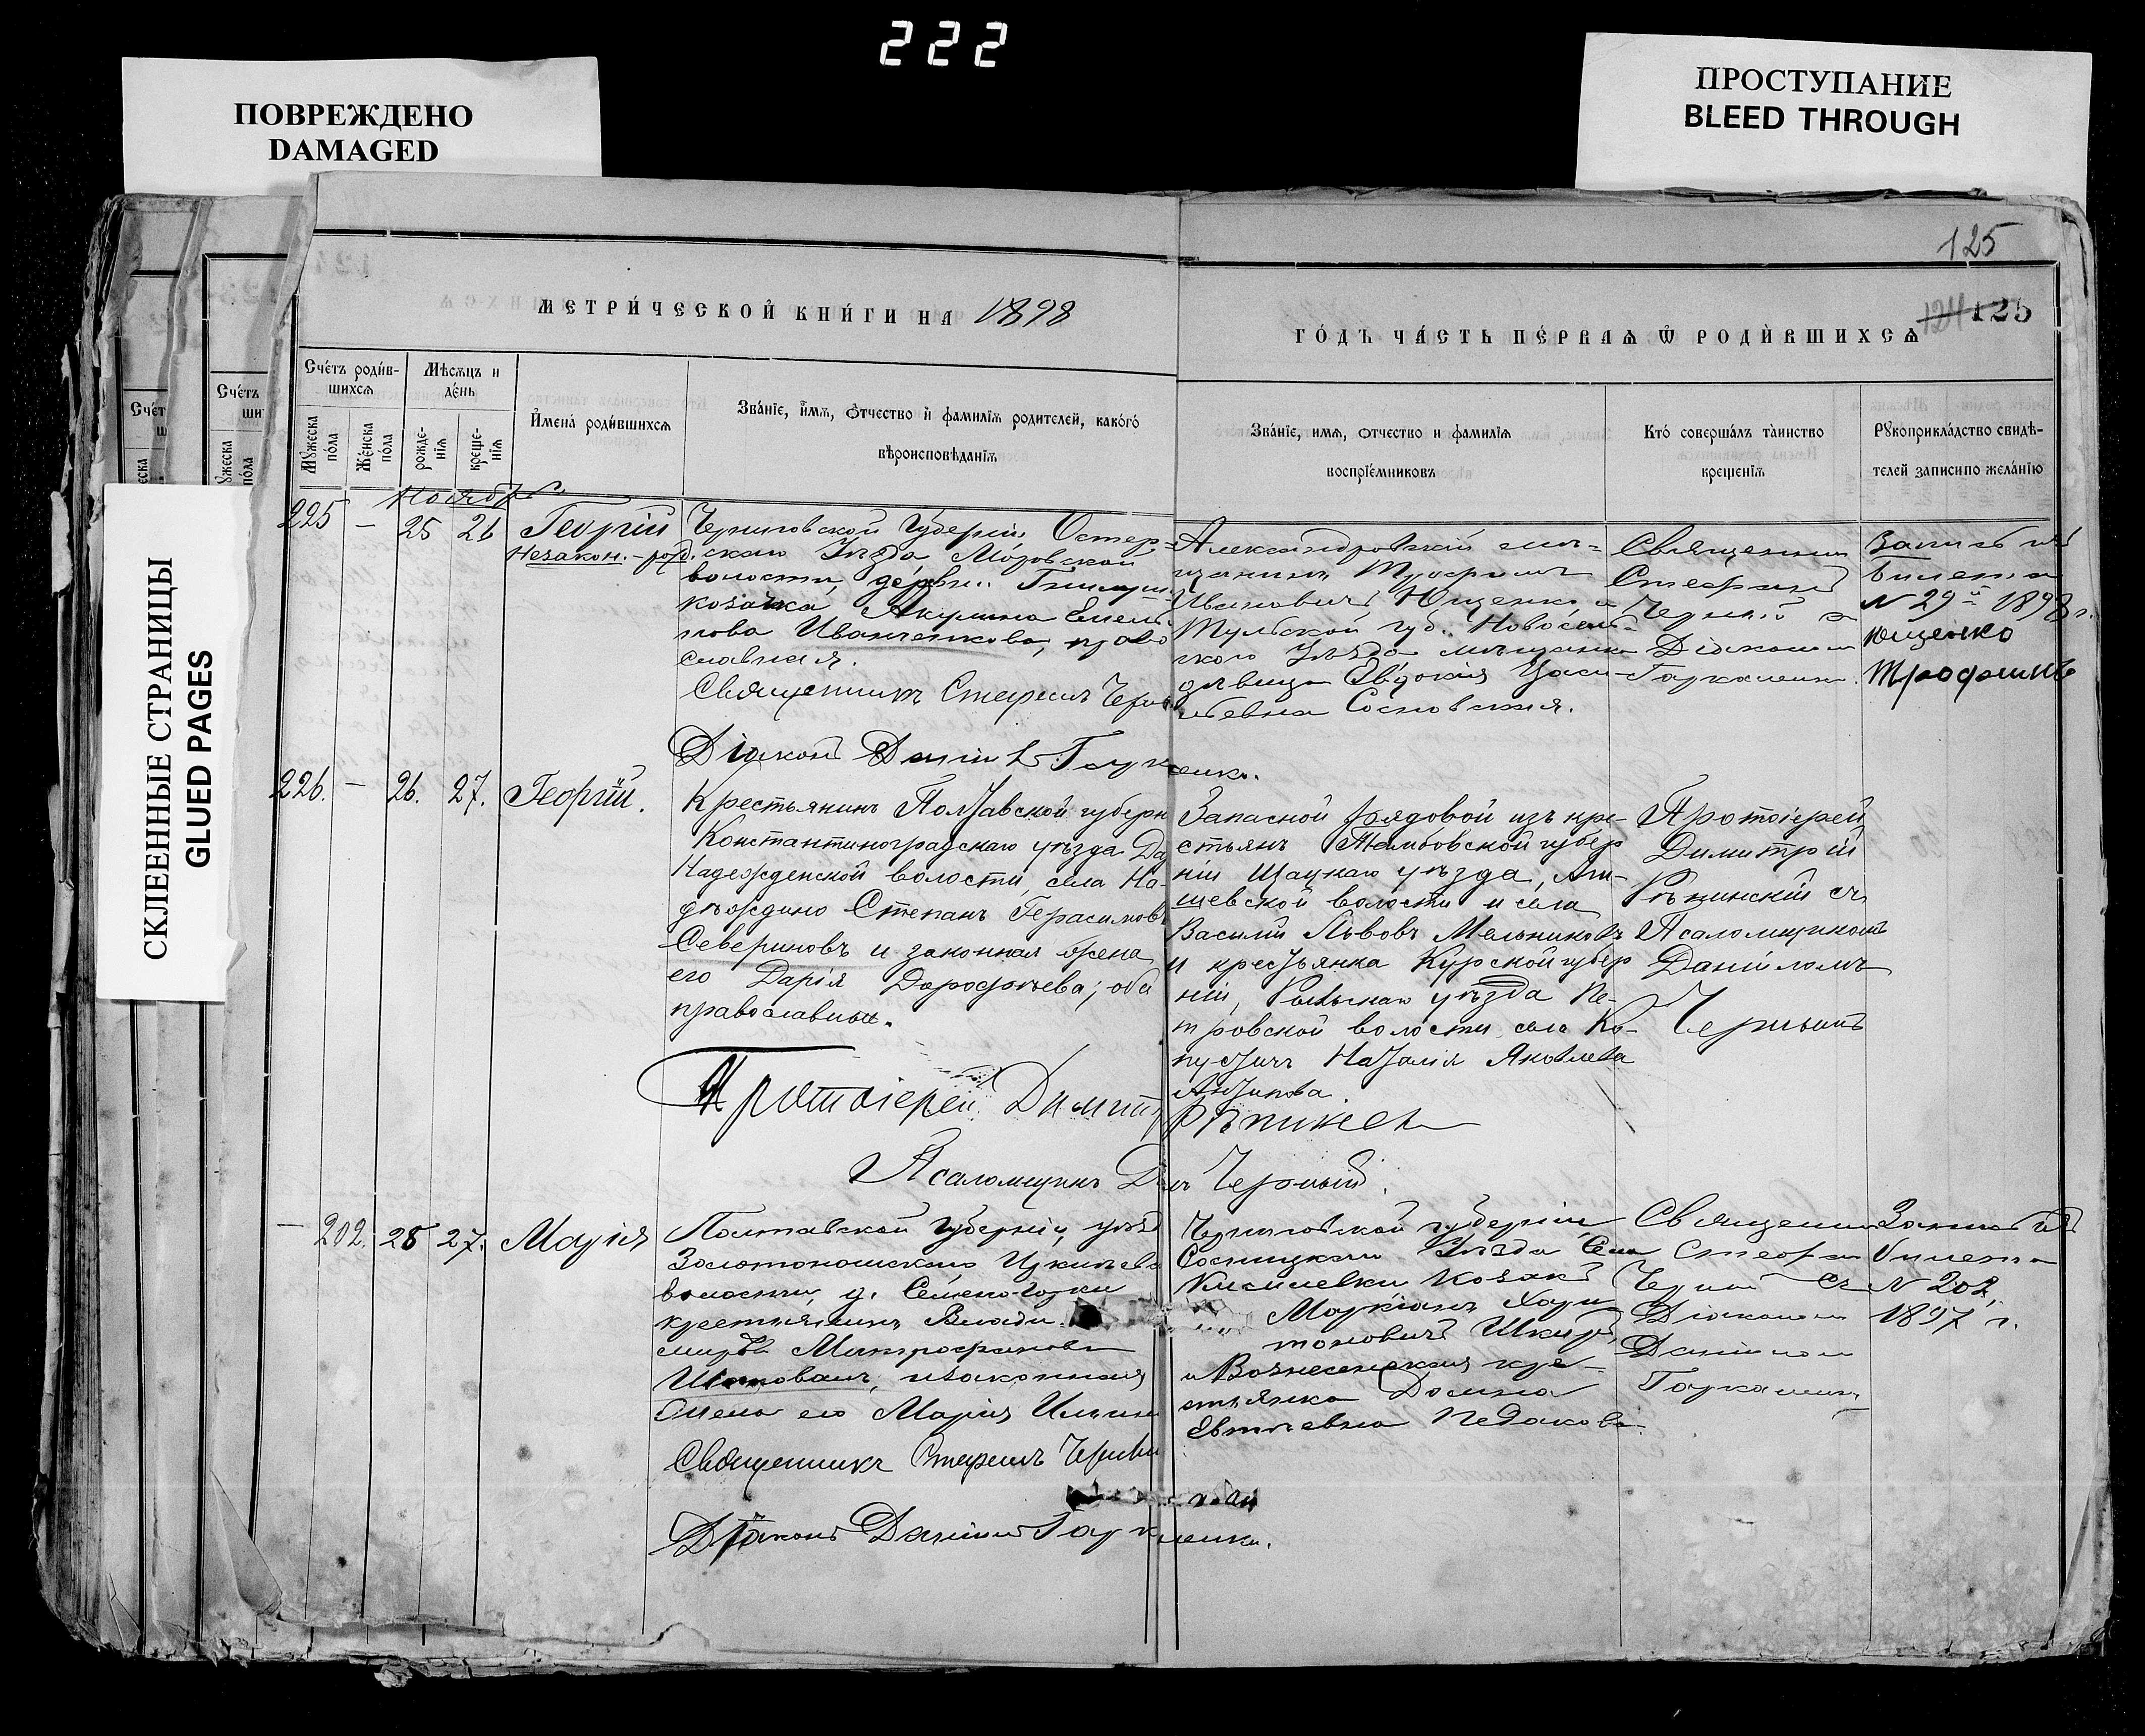 222
ПОВРЕЖДЕНО
DAMAGED
ПРОСТУПАНИЕ
BLEED THROUGH
СКЛЕЕННЫЕ СТРАНИЦЫ
GLUED PAGES
125
МЕТРИ́ЧЕСКОЙ КНИ́ГИ НА 1898
ГО́ДЪ ЧА́СТЬ ПЕ́РВАѦ Ѿ РОДИ́ВШИХСѦ
124 125
Сче́тъ роди́в-
шихсѧ
Мѣсѧцъ и
де́нь
Мꙋжеска
по́ла
Же́нска
по́ла
рожде-
нїѧ
креще-
нїѧ
Имена̀ роди́вшихсѧ
Зва́нїе, имѧ, ѻтчество и фамилїѧ родителей, како́гѡ
вѣроисповѣданїѧ
Зва́нїе, имѧ, ѻтчество и фамилїѧ
воспрїе́мниковъ
Кто̀ соверша́лъ таинство
крещенїѧ
Рꙋкоприкла́дство свидѣ-
телей записи по жела́нїю
Ноябрь
225 – 25 26 Георгій
Незакон.-рожд.
Черниговской Губерніи Остер-
скаго Уѣзда Мо́ровской
волости, деревни
козачка Акулина Емель-
нова Иванченкова, право
славная.
Священникъ Стефанъ Черный
Діаконъ Даніилъ Гаркаленко.
Александровскій мѣ-
щанинъ Трофимъ
Ивановичъ Ющенко и
Тульской губ. Новосиль-
скаго Уѣзда мѣщанка
дѣвица Евдокія Васи-
льевна Сосновская.
Священникъ
Стефанъ
Черный съ
Діакономъ
Гаркаленко.
Запись изъ
билета
N 29й 1898 г.
Ющенко
Трофимъ
226. – 26. 27. Георгій.
Крестьянинъ Полтавской губерн
Константиноградскаго уѣзда
Надежденской волости, села На-
дѣждино Степанъ Герасимовъ
Севериновъ и законная жена
его Дарія Дорофѣева; оба
православные.
Протоіерей Димитр Рѣпинскій
Псаломщикъ Дан Черный.
Запасной рядовой изъ кре-
стьянъ Тамбовской губер
ніи Шацкаго уѣзда, Али-
шевской волости и села
Василій Львовъ Мельниковъ
и крестьянка Курской губер
ніи, Рыльскаго уѣзда Пе-
тровской волости, села Ко-
пустичъ Наталія Яковлева
Антипова.
Протоіерей
Димитрій
Рѣпинскій съ
Псаломщикомъ
Даніиломъ
Чернымъ
– 202. 25 27. Марія
Полтавской Губерніи, уѣзд
Золотоношскаго Иркліевс
волости, д. Семено-Горки
крестьянинъ Влади-
міръ Митрофановъ
Шаповалъ, и законная
жена его Марія Ильин
Священникъ Стефанъ Черный
Діаконъ Даніилъ Гаркаленко.
Черниговской губерніи,
Сосницкаго Уѣзда Села
Киселевки козакъ
Маркіанъ Хари-
тоновичъ Шкира,
и Вознесенская кре-
стьянка Домна
Евтѣевна Недакова.
Священник
Стефан
Черный съ
Діакономъ
Даніилом
Гаркаленко
Запись изъ
билета
N 202,
1897 г.